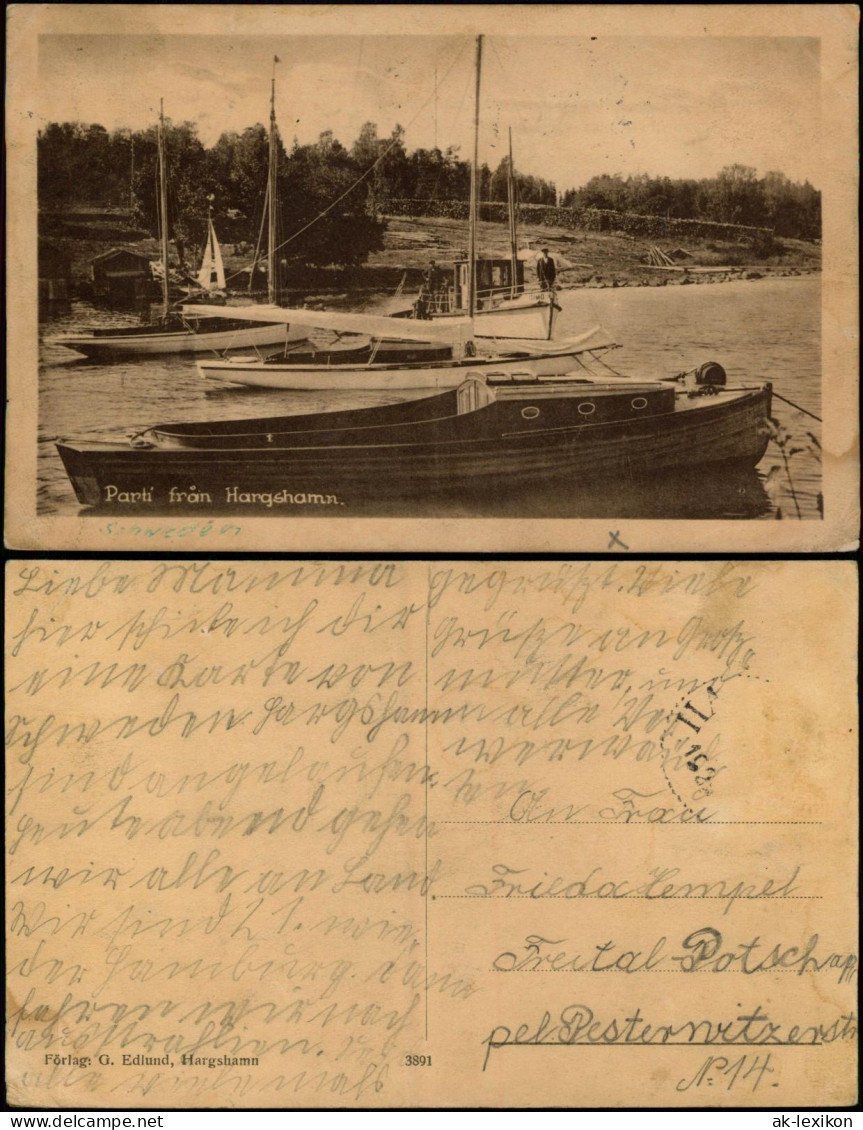 Parti från Hargshamn.
Schweden
x
Liebe Mamma
hier schicke ich dir
eine Karte von
Schweden. Hargshamn
sind angelaufen.
heute abend gehen
wir alle an Land.
Wir sind 21. wie
der Hamburg. dann
fahren wir nach
Ausstrahlien.
alle viele mahs
gegrüßt. Viele
Grüsze an Grosz
mutter, und
alle Ver
werwand
ten
1938
An Frau
Frieda Hempel
Freital-Potschap
pel Pesterwitzerstr
No. 14.
Förlag: G. Edlund, Hargshamn
3891
www.delcampe.net
ak-lexikon